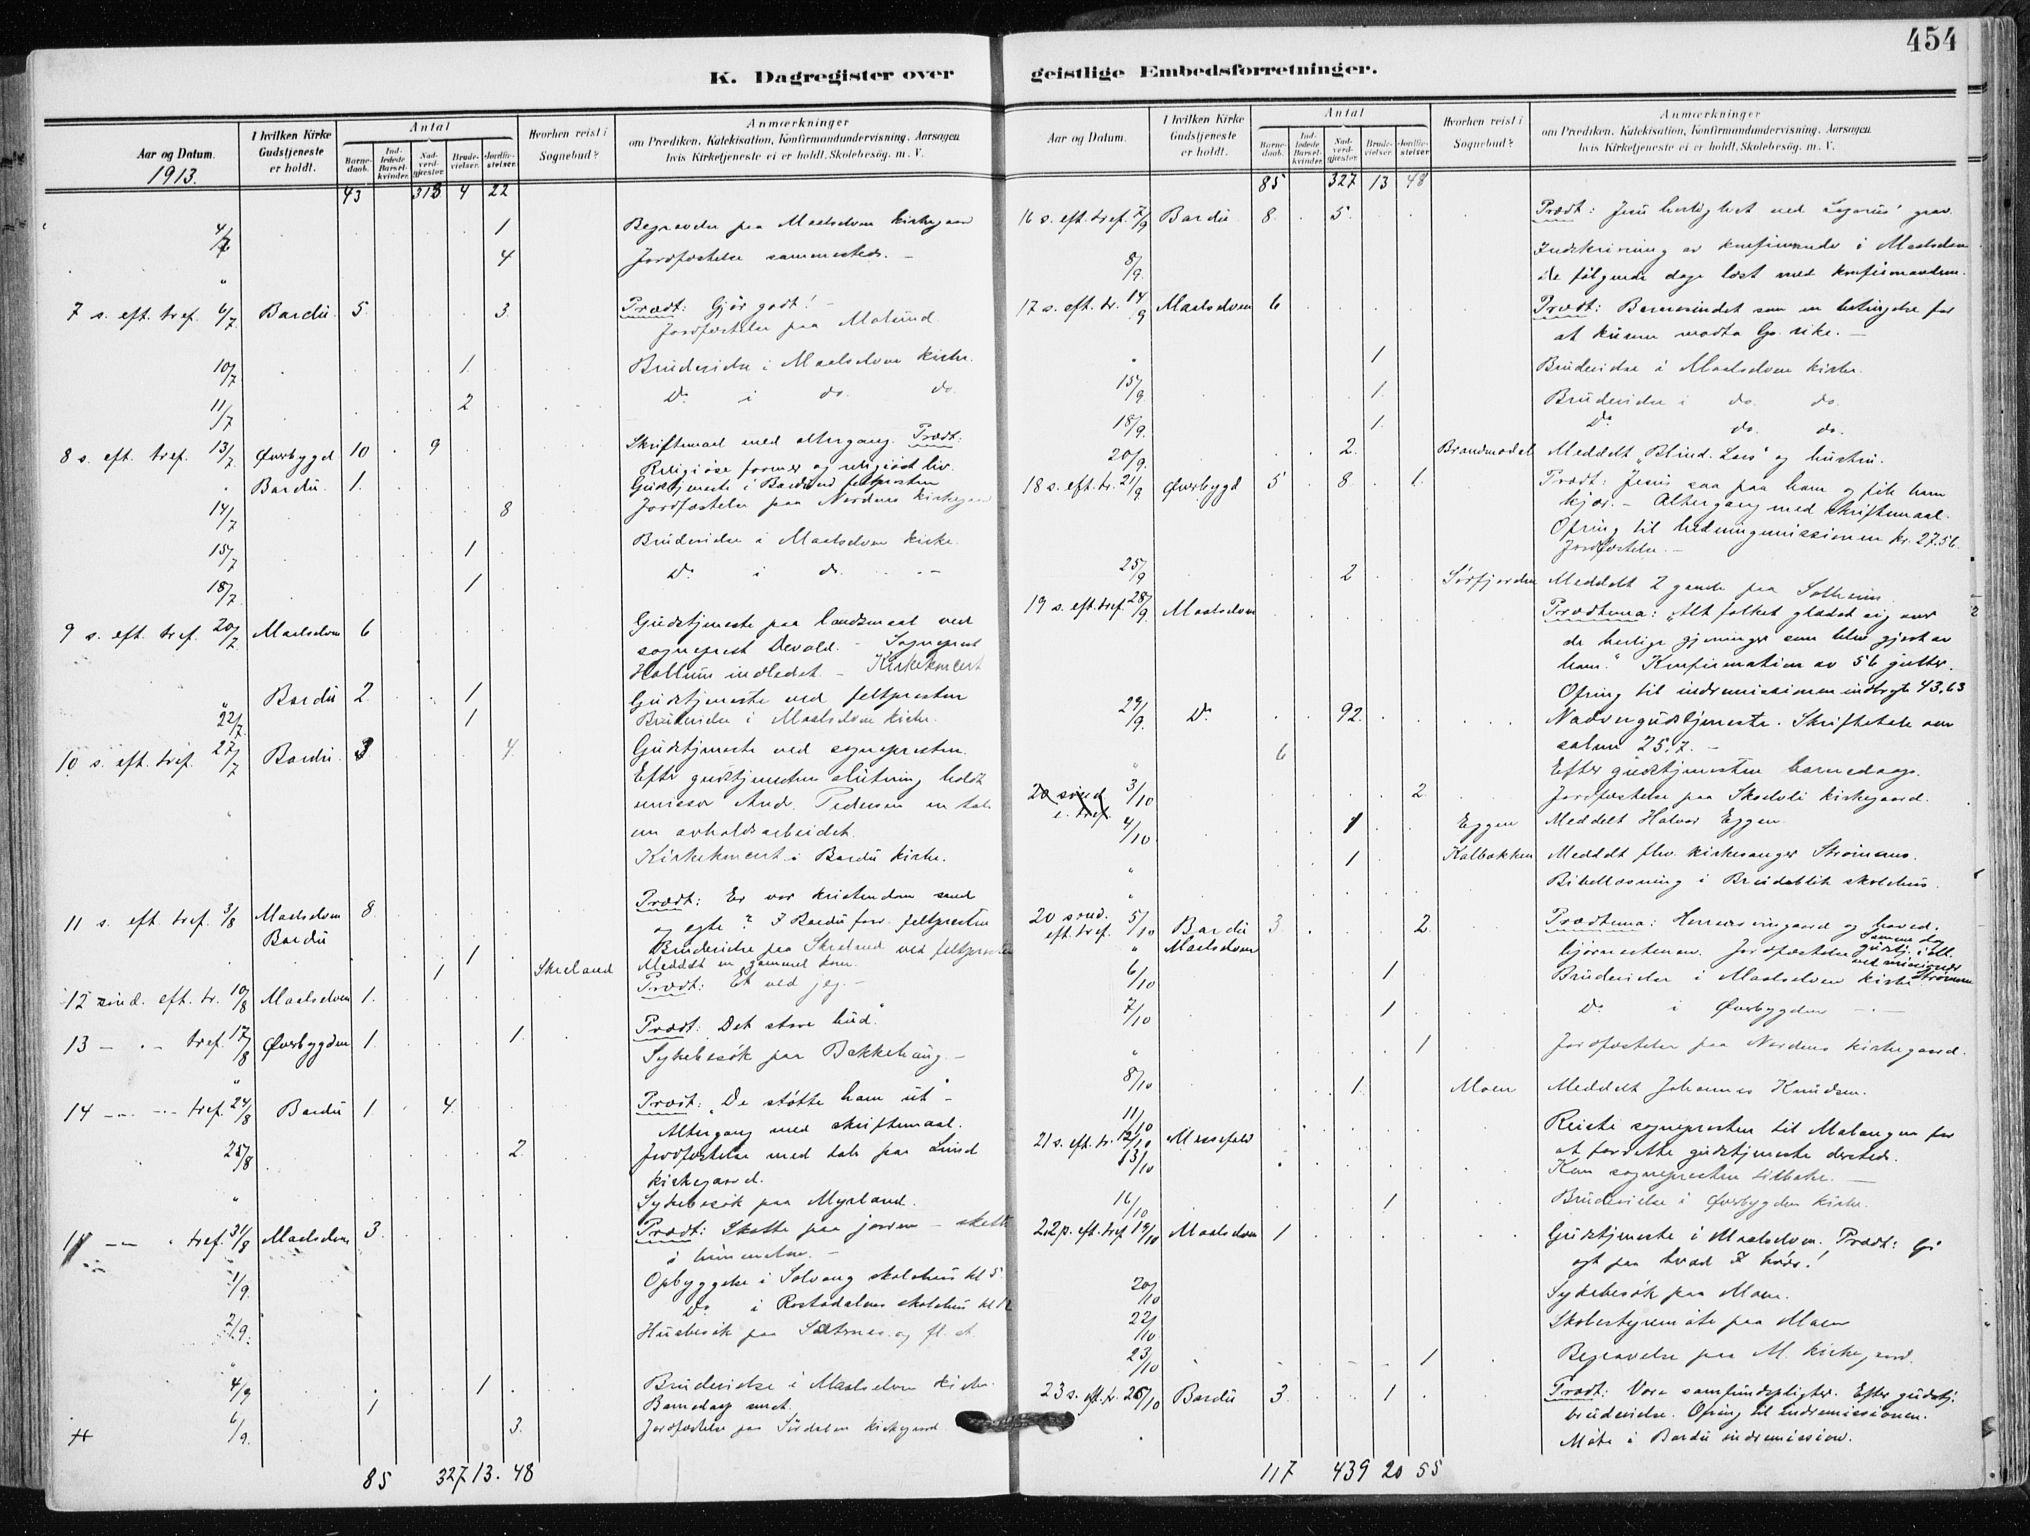 454
K. Dagregister over geistlige Embedsforretninger.
Aar og Datum. 1913.
I hvilken Kirke Gudstjeneste er holdt.
Antal
Barne-daab.
Ind-ledede Barsel-kvinder.
Nad-verd-gjæster.
Brude-vielser.
Jordfæ-stelser.
Hvorhen reist i Sognebud?
Anmærkninger
om Prædiken, Katekisation, Konfirmandundervisning, Aarsagen
hvis Kirketjeneste ei er holdt, Skolebesøg. m. V.
43 313 4 22
4/7 1 Begravelse paa Maalselven kirkegaard
" 4 Jordfæstelse sammesteds. –
7 s. eft. tref. 6/7 Bardu. 5. 3. Prædt: Gjør godt! –
Jordfæstelse paa Molund.
10/7 1 Brudevielse i Maalselven kirke.
11/7 2 Do i do. do.
8 s. eft. tref. 13/7 Øverbygd 10 9 Skriftemaal med altergang. Prædt:
Religiøse former og religiøst liv.
" Bardu. 1. Gudstjeneste i Bardu ved feltpresten
14/7 8 Jordfæstelse paa Nordmo kirkegaard
15/7 1 Brudevielse i Maalselven kirke.
18/7 1 Do i do. – –
9 s. eft. tref. 20/7 Maalselven 6 Gudstjeneste paa landsmaal ved
sogneprest Devold. – Sogneprest
Hallum indledet. – Kirkekoncert
" Bardu 2. 1 Gudstjeneste ved feltpresten
22/7 1 Brudevielse i Maalselven kirke.
10 s. eft. tref. 27/7 Bardu. 3. 4. Gudstjeneste ved sognepresten.
Efter gudstjenesten slutning holdt
And. Pedersen en tale
om avholdsarbeidet.
Kirkekoncert i Bardu kirke.
11 s. eft. tref. 3/8 Maalselven 8. Prædt: Er vor kristendom sand
Bardu og egte? I Bardu forr. feltpresten
1 Brudevielse paa Skreland ved feltpresten
1 Skreland Meddelt en gammel kone.
12 sønd. eft. tr. 10/8 Maalselven 1. Prædt: Et ved jeg. –
13 – " – tref. 17/8 Øverbygden 1. 1. Prædt: Det store bud."
" Sykebesøk paa Bakkehaug. –
14 – – tref. 24/8 Bardu 1 4. Prædt: "De støtte ham ut" –
Altergang med skriftemaal.
25/8 2 Jordfæstelse med tale paa Lund
kirkegaard.
" Sykebesøk paa Myrland.
– " tref. 31/8 Maalselven 3. Prædt: Skatte paa jorden – skatte
i himmelen. –
1/9 Opbyggelse i Solvang skolehus kl 5
Do i Rostadalens skolehus kl
2/9. Husbesøk paa Sætermo og fl. st.
"
4/9 1 Brudevielse i Maalselven kirke.
1 Barnedaap smst.
6/9. 3. Jordfæstelse paa Sørdalen kirkegaard
85 327 13. 48
Aar og Datum.
I hvilken Kirke Gudstjeneste er holdt.
Antal
Barne-daab.
Ind-ledede Barsel-kvinder.
Nad-verd-gjæster.
Brude-vielser.
Jordfæ-stelser.
Hvorhen reist i Sognebud?
Anmærkninger
om Prædiken, Katekisation, Konfirmandundervisning, Aarsagen
hvis Kirketjeneste ei er holdt, Skolebesøg. m. V.
85 327 13 48
16 s. eft. tref. 7/9 Bardu 8. 5. Prædt: Jesu herlighet ved Lazarus' grav.
Indskrivning av konfirmander i Maalselven
8/9. De følgende dage læst med konfirmanderne.
17 s. eft. tr. 14/9 Maalselven 6 Prædt: Barnesindet som en betingelse for
at kunne modta Gs. rike. –
" 1 Brudevielse i Maalselven kirke.
15/9. 1. Brudevielse i do. do.
18/9. 1. Do. do. do.
20/9. 2. Brandmodal Meddelt "Blind-Lars" og hustru.
18 s. eft. tr. 21/9 Øverbygd 5 8. 1. Prædt: Jesus saa paa ham og fik ham
kjær. – Altergang med skriftemaal.
Ofring til hedningemissionen kr. 27.56
Jordfæstelse. –
25/9 2 Sørfjorden Meddelt 2 gamle paa Solheim.
19 s. eft. tref. 28/9. Maalselven Prædtema: "Alt folket glædet sig over
de herlige gjerninger som blev gjort av
ham." Konfirmation av 56 gutter.
Ofring til indremissionen indbragte 43.63
29/9. Do 92. Nadvergudstjeneste. Skriftetale over
salme 25.7. –
" 6 Efter gudstjenesten barnedaap.
20 sønd e. tref. 3/10 2. Jordfæstelse paa Skoelvli kirkegaard.
4/10 1 Eggen Meddelt Halvor Eggen.
" 1 Kalbakken Meddelt fhv. kirkesanger Strømans.
Bibellæsning i Breideblik skolehus.
20 sønd. eft. tref. 5/10 Bardu 3. 2. Prædtema: Herrens vingaard og hoved-
" Maalselven hjørnestenen. Jordfæstelse Samme dag gudstj. i Mlt. ved missionær Strømme
6/10 1 Brudevielse i Maalselven kirke
7/10 1 Do i Øverbygden – –
" 1 Jordfæstelse paa Nordmo kirkegaard.
8/10 1. Moen Meddelt Johannes Knudsen.
11/10 Reiste sognepresten til Malangen for
21 s. eft. tr. 12/10 Mestefald at forrette gudstjeneste dersteds.
13/10 Kom sognepresten tilbake. –
16/10 1 Brudevielse i Øverbygden kirke.
22 s. eft. tref 19/10 Maalselven 1 Gudstjeneste i Maalselven. Prædt: Gi
agt paa hvad I hører!
20/10 Sykebesøk paa Moen.
22/10 Skolestyremøte paa Moen
23/10 1 Begravelse paa M. kirkegaard.
23 s. eft. tr. 26/10 Bardu 3. 1 Prædt: Vore samfundspligter. Efter gudstj.
brudevielse. Ofring til indremissionen.
Møte i Bardu indremission.
117 439 20 55